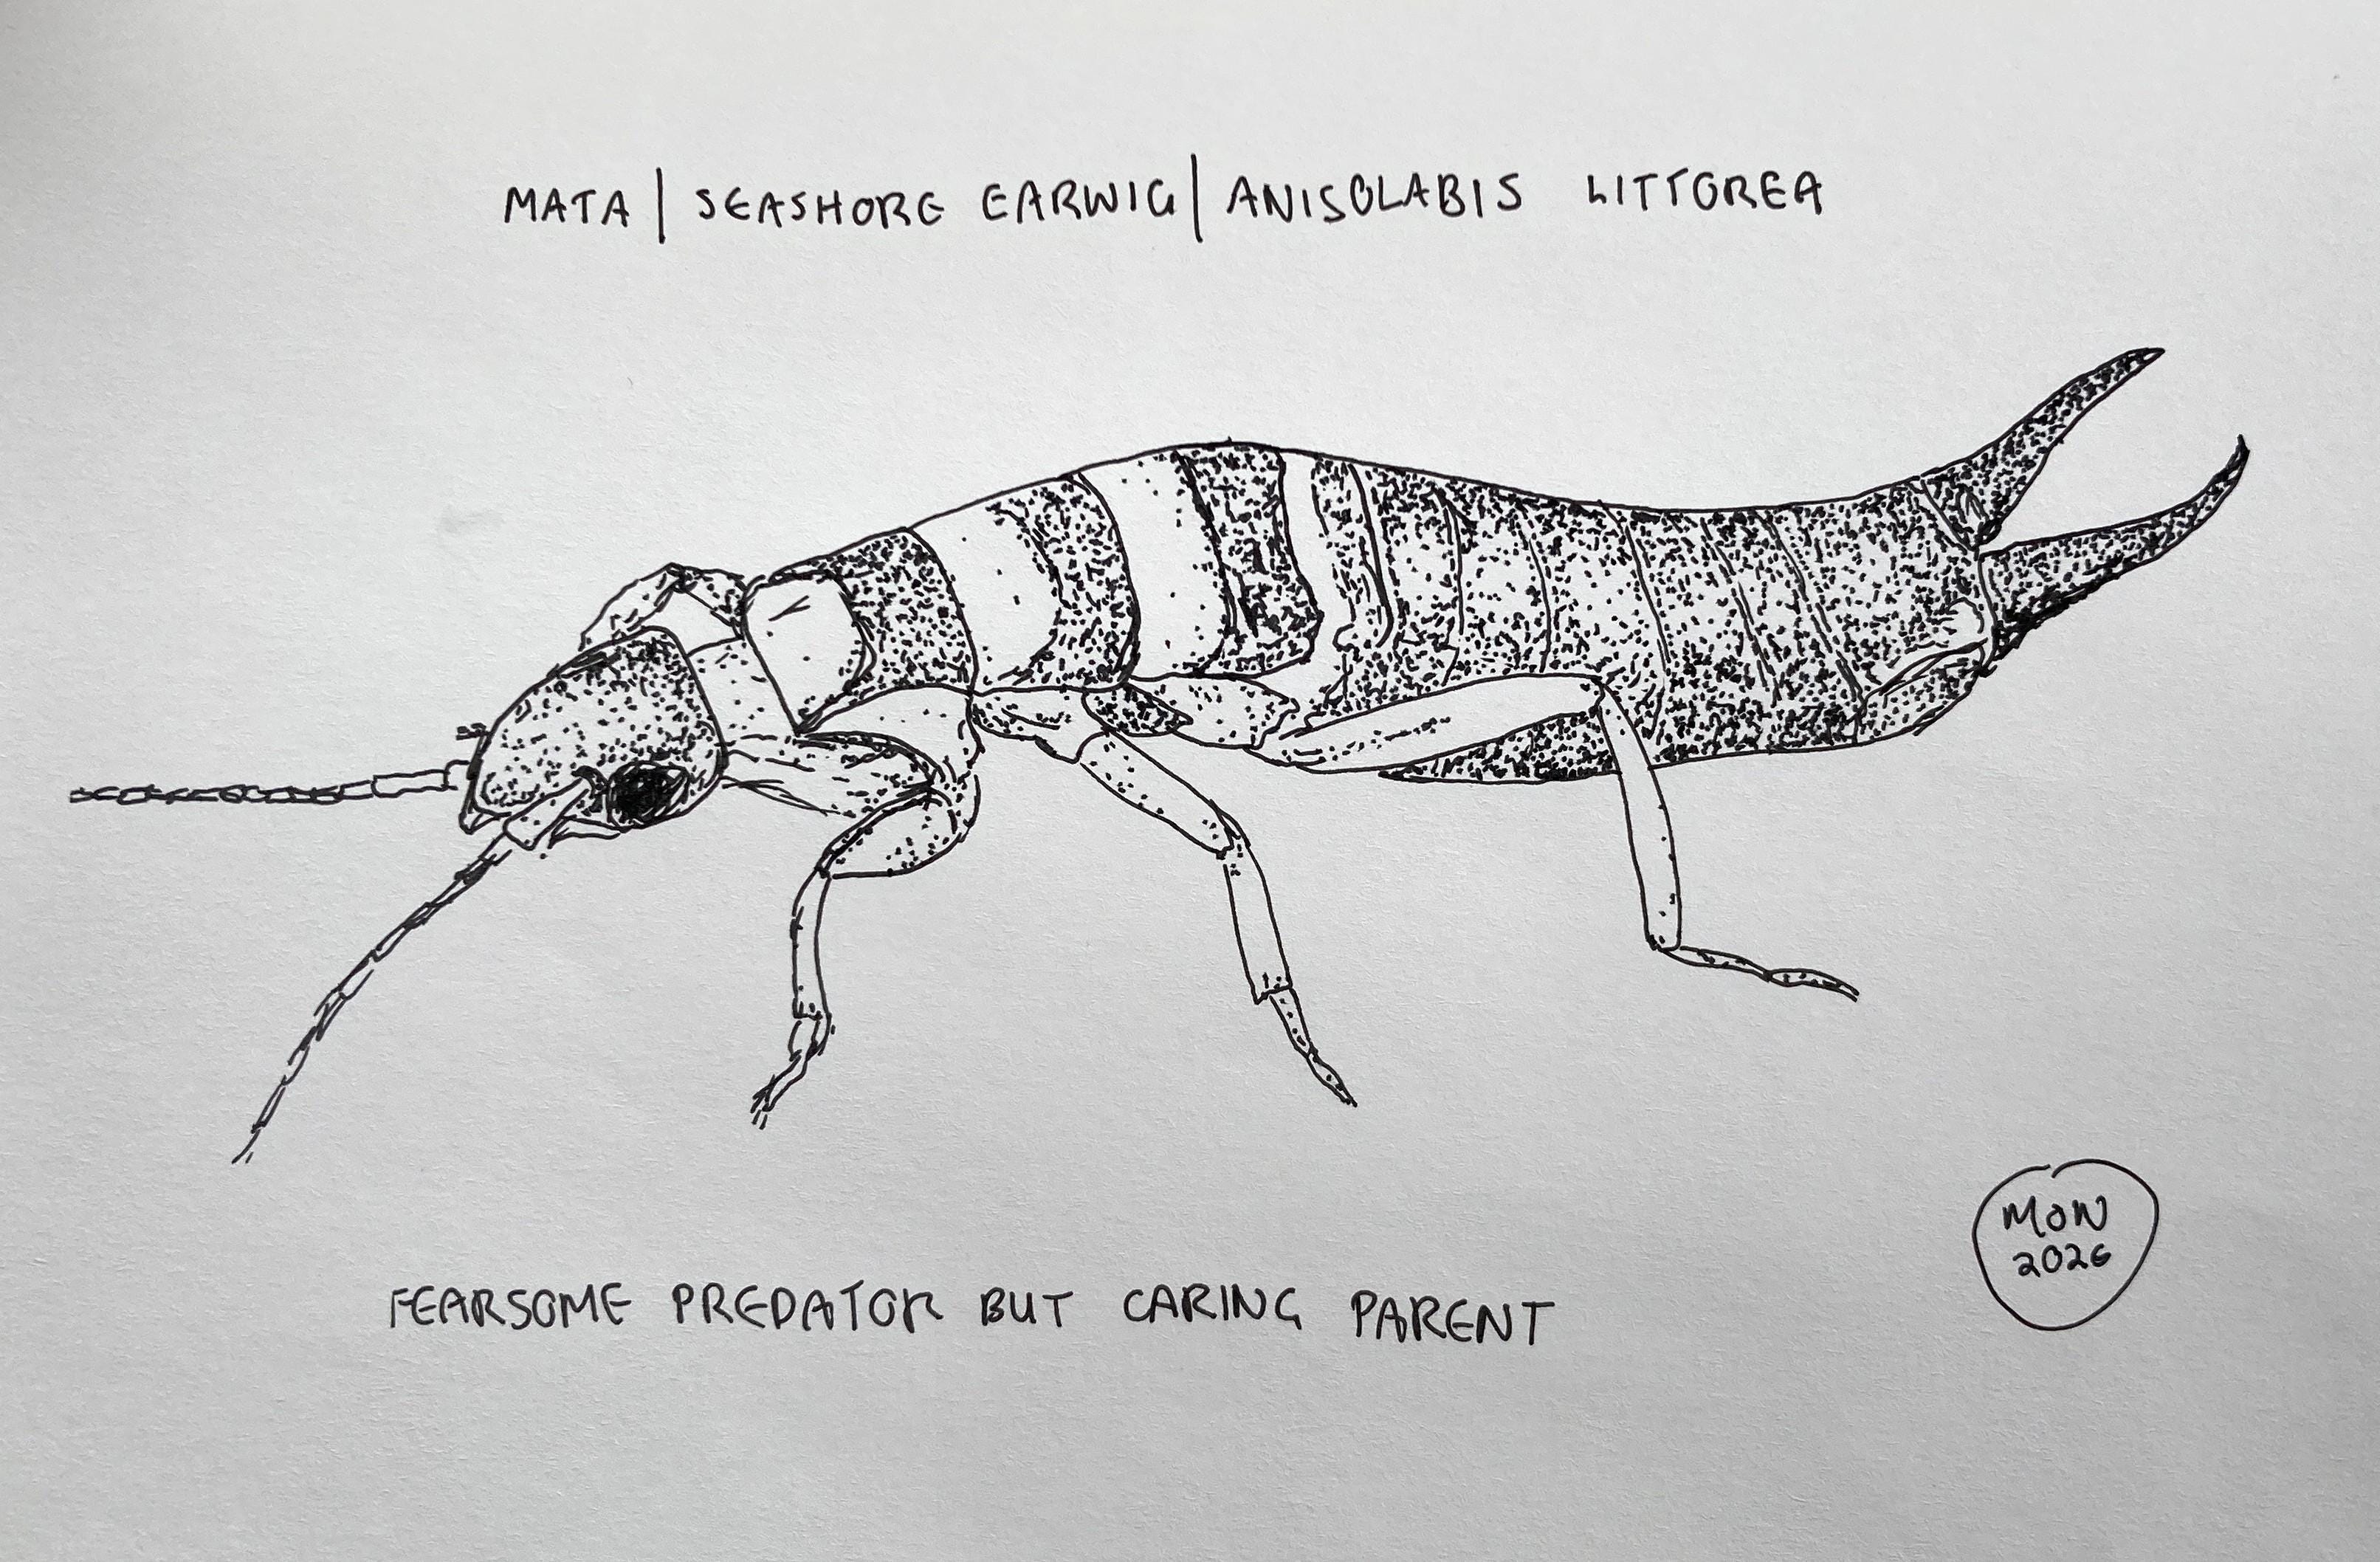 MATA | SEASHORE EARWIG | ANISOLABIS LITTOREA
FEARSOME PREDATOR BUT CARING PARENT
MON
2026